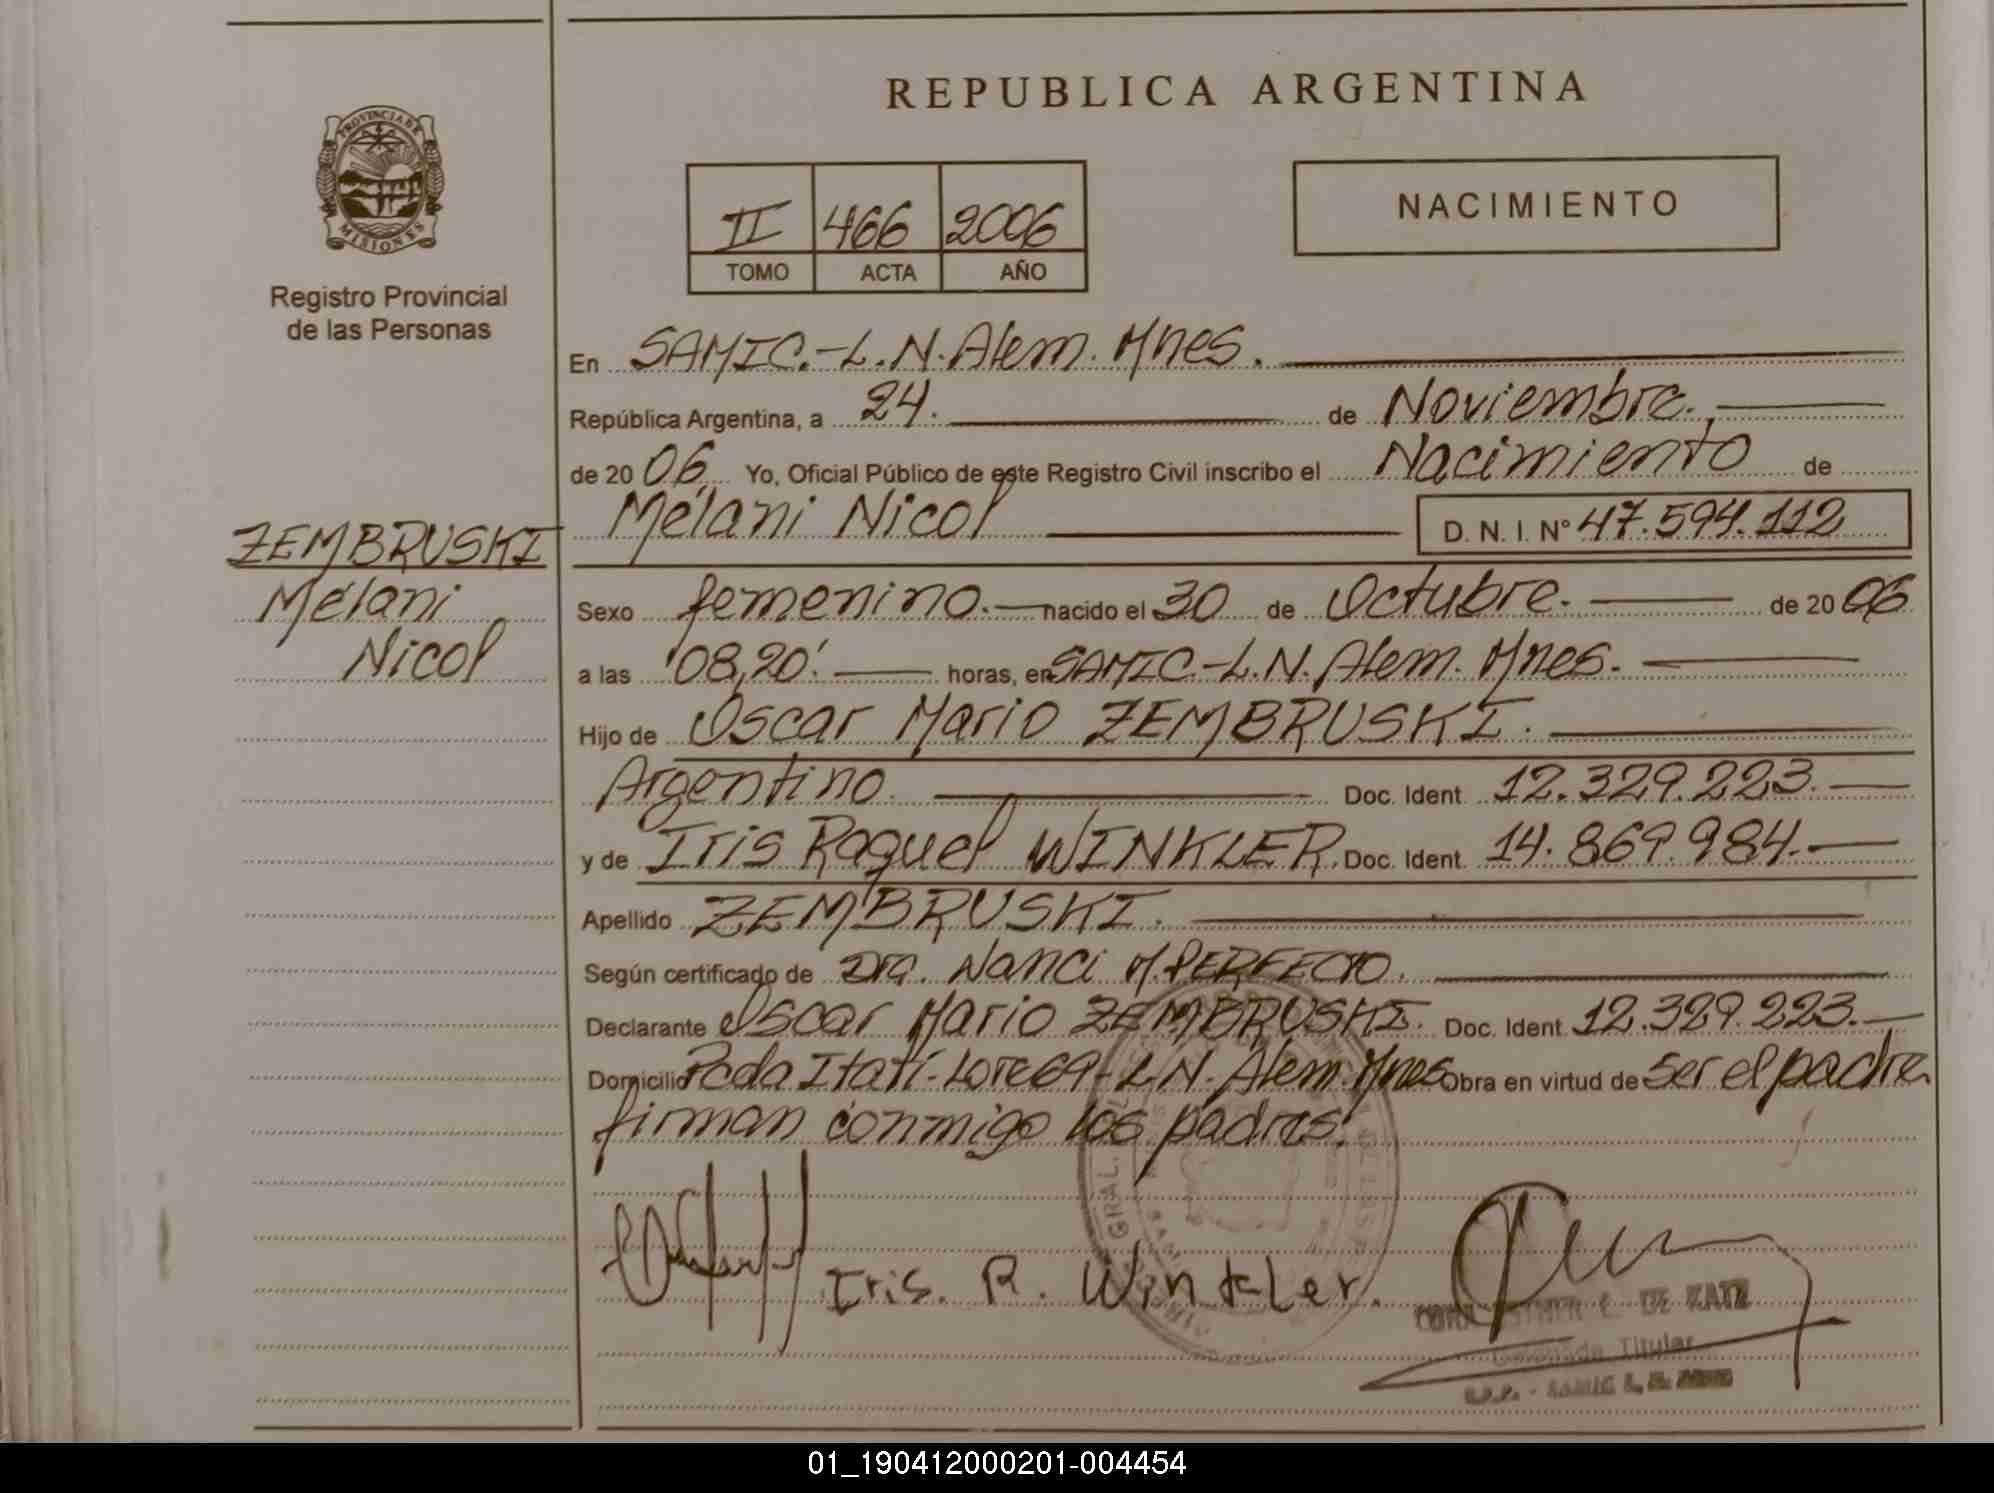 REPUBLICA ARGENTINA
PROVINCIA DE
MISIONES
Registro Provincial
de las Personas
II 466 2006
TOMO ACTA AÑO
NACIMIENTO
En SAMIC.-L.N.Alem. Mnes.
República Argentina, a 24. de Noviembre.
de 2006. Yo, Oficial Público de este Registro Civil inscribo el Nacimiento de
Mélani Nicol D. N. I. Nº 47.594.112
ZEMBRUSKI
Mélani
Nicol
Sexo femenino. nacido el 30 de Octubre. de 2006
a las '08,20'. horas, en SAMIC.-L.N. Alem. Mnes.
Hijo de Oscar Mario ZEMBRUSKI.
Argentino. Doc. Ident. 12.329.223.
y de Iris Raquel WINKLER. Doc. Ident. 14.869.984.
Apellido ZEMBRUSKI.
Según certificado de Dra. Nanci M. PERFECTO.
Declarante Oscar Mario ZEMBRUSKI. Doc. Ident. 12.329.223.
Domicilio Itatí-Lote 69-L.N. Alem. Mnes Obra en virtud de ser el padre
firman conmigo los padres.
Iris. R. Winkler.
DE KATZ
Titular
01_190412000201-004454